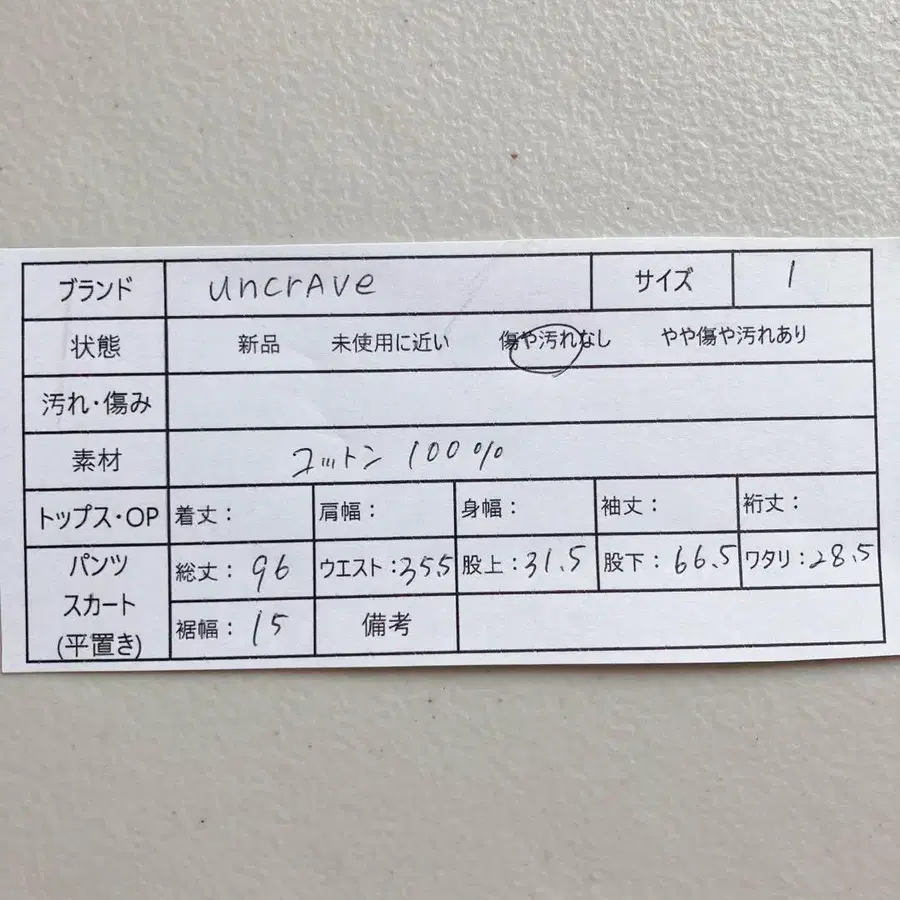 ブランド uncrAve サイズ 1
状態 新品 未使用に近い 傷や汚れなし やや傷や汚れあり
汚れ・傷み
素材 コットン 100%
トップス・OP 着丈： 肩幅： 身幅： 袖丈： 裄丈：
パンツ スカート (平置き) 総丈：96 ウエスト：35.5 股上：31.5 股下：66.5 ワタリ：28.5
裾幅：15 備考